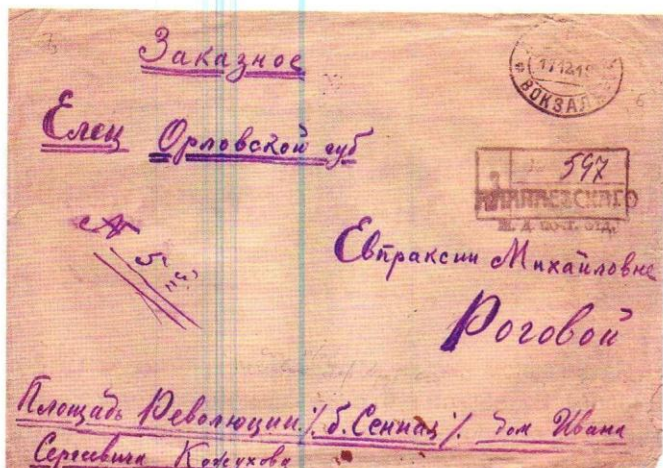 Заказное
17 12 1
ВОКЗАЛ
Елец Орловской губ
597
АЛАПАЕВСКАГО
Ж. Д. ПОЧТ. ОТД.
№ 5
Евпраксии Михайловне
Роговой
Площадь Революции /. б. Сенная /. дом Ивана
Сергеевича Кожухова